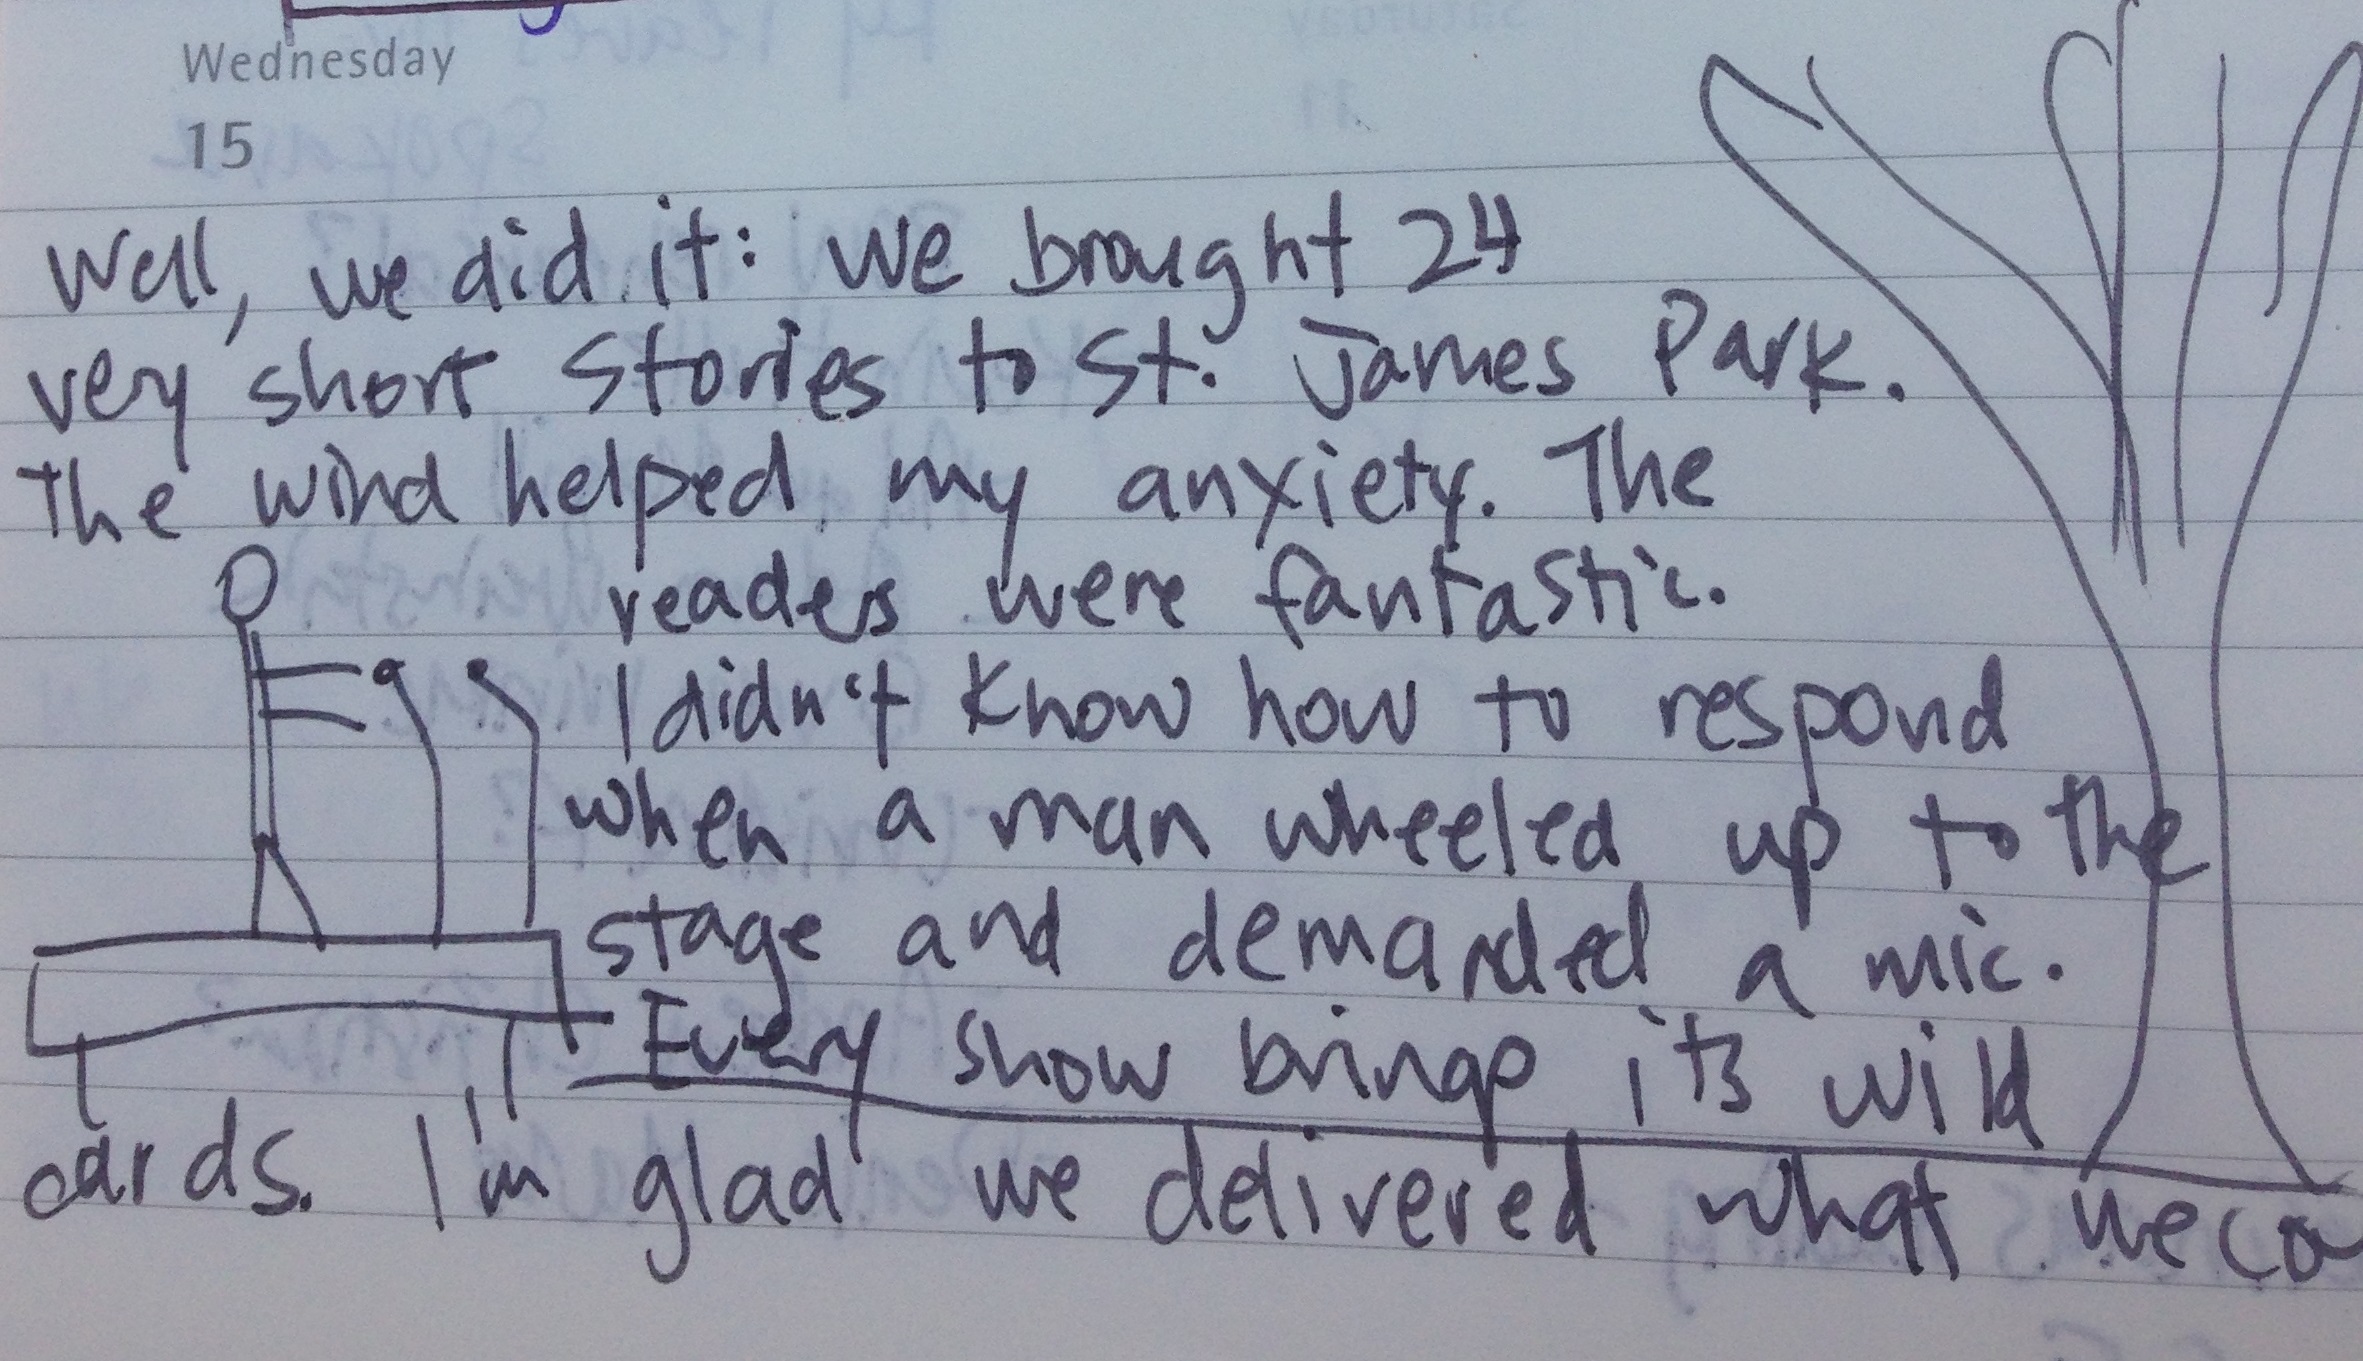 Wednesday
15
Well, we did it: we brought 24
very short stories to St. James Park.
The wind helped my anxiety. The
readers were fantastic.
I didn't know how to respond
when a man wheeled up to the
stage and demanded a mic.
Every show brings its wild
cards. I'm glad we delivered what we co